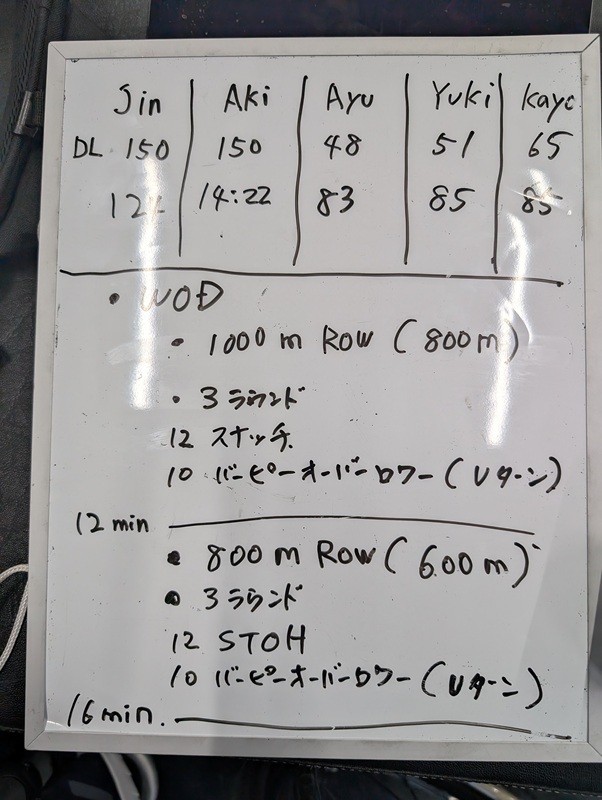 Jin Aki Ayu Yuki Kayo
DL 150 150 48 51 65
14:22 83 85 85
・WOD
・1000m Row (800m)
・3ラウンド
12 スナッチ
10 バーピーオーバーロワー(Uターン)
12min
・800m Row (600m)
・3ラウンド
12 STOH
10 バーピーオーバーロワー(Uターン)
16min.